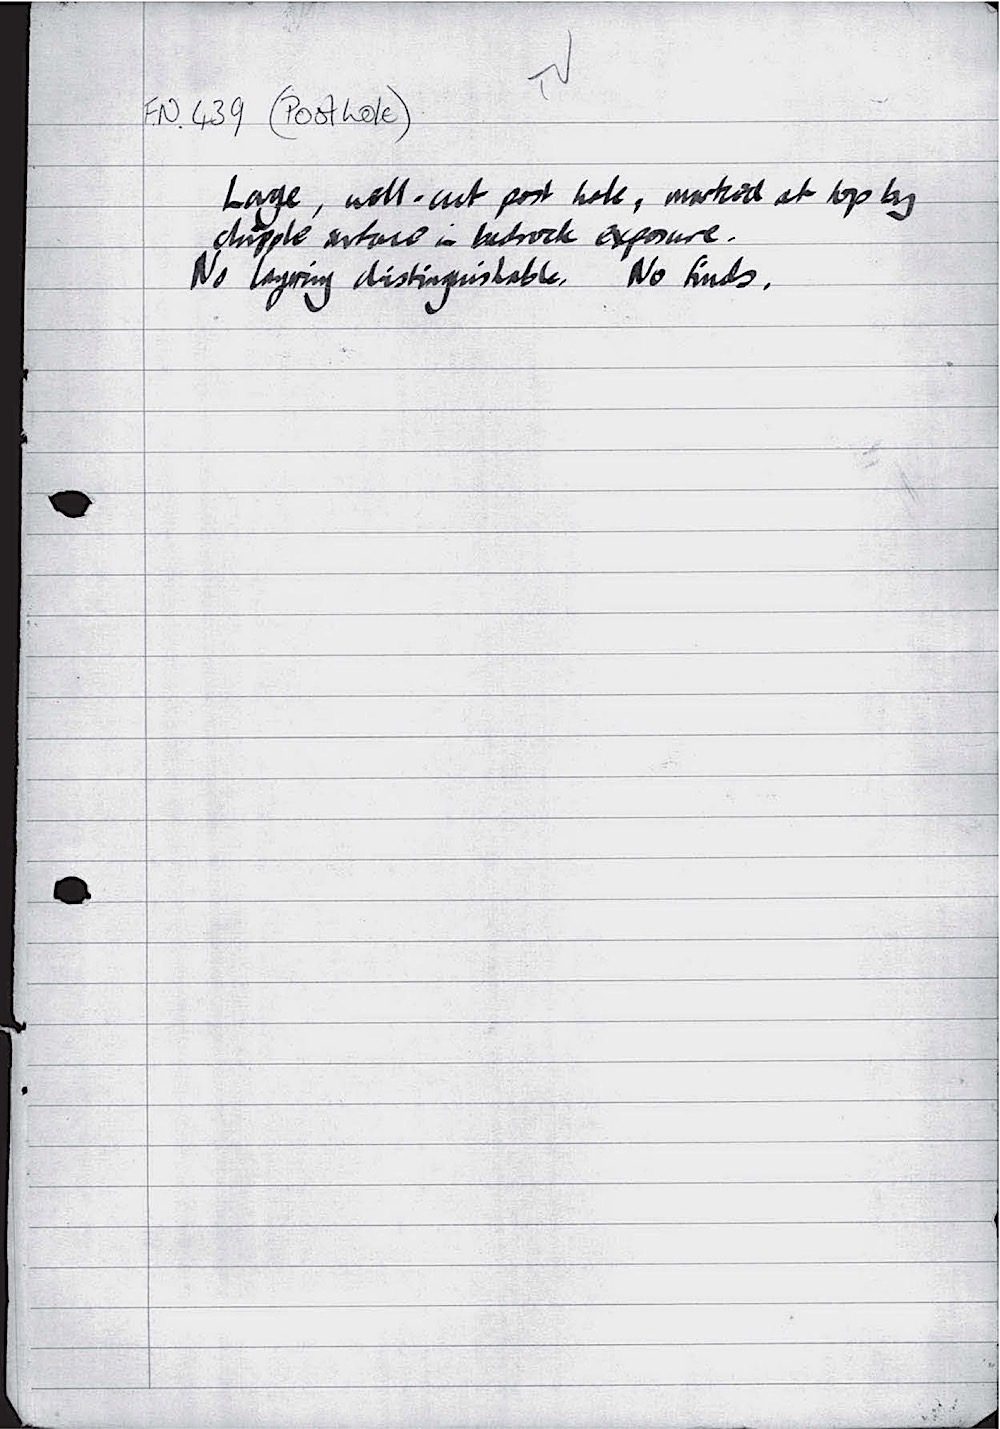 F.N. 439 (Posthole)
Large, well-cut post hole, marked at top by
surface in bedrock exposure.
No layering distinguishable. No finds.